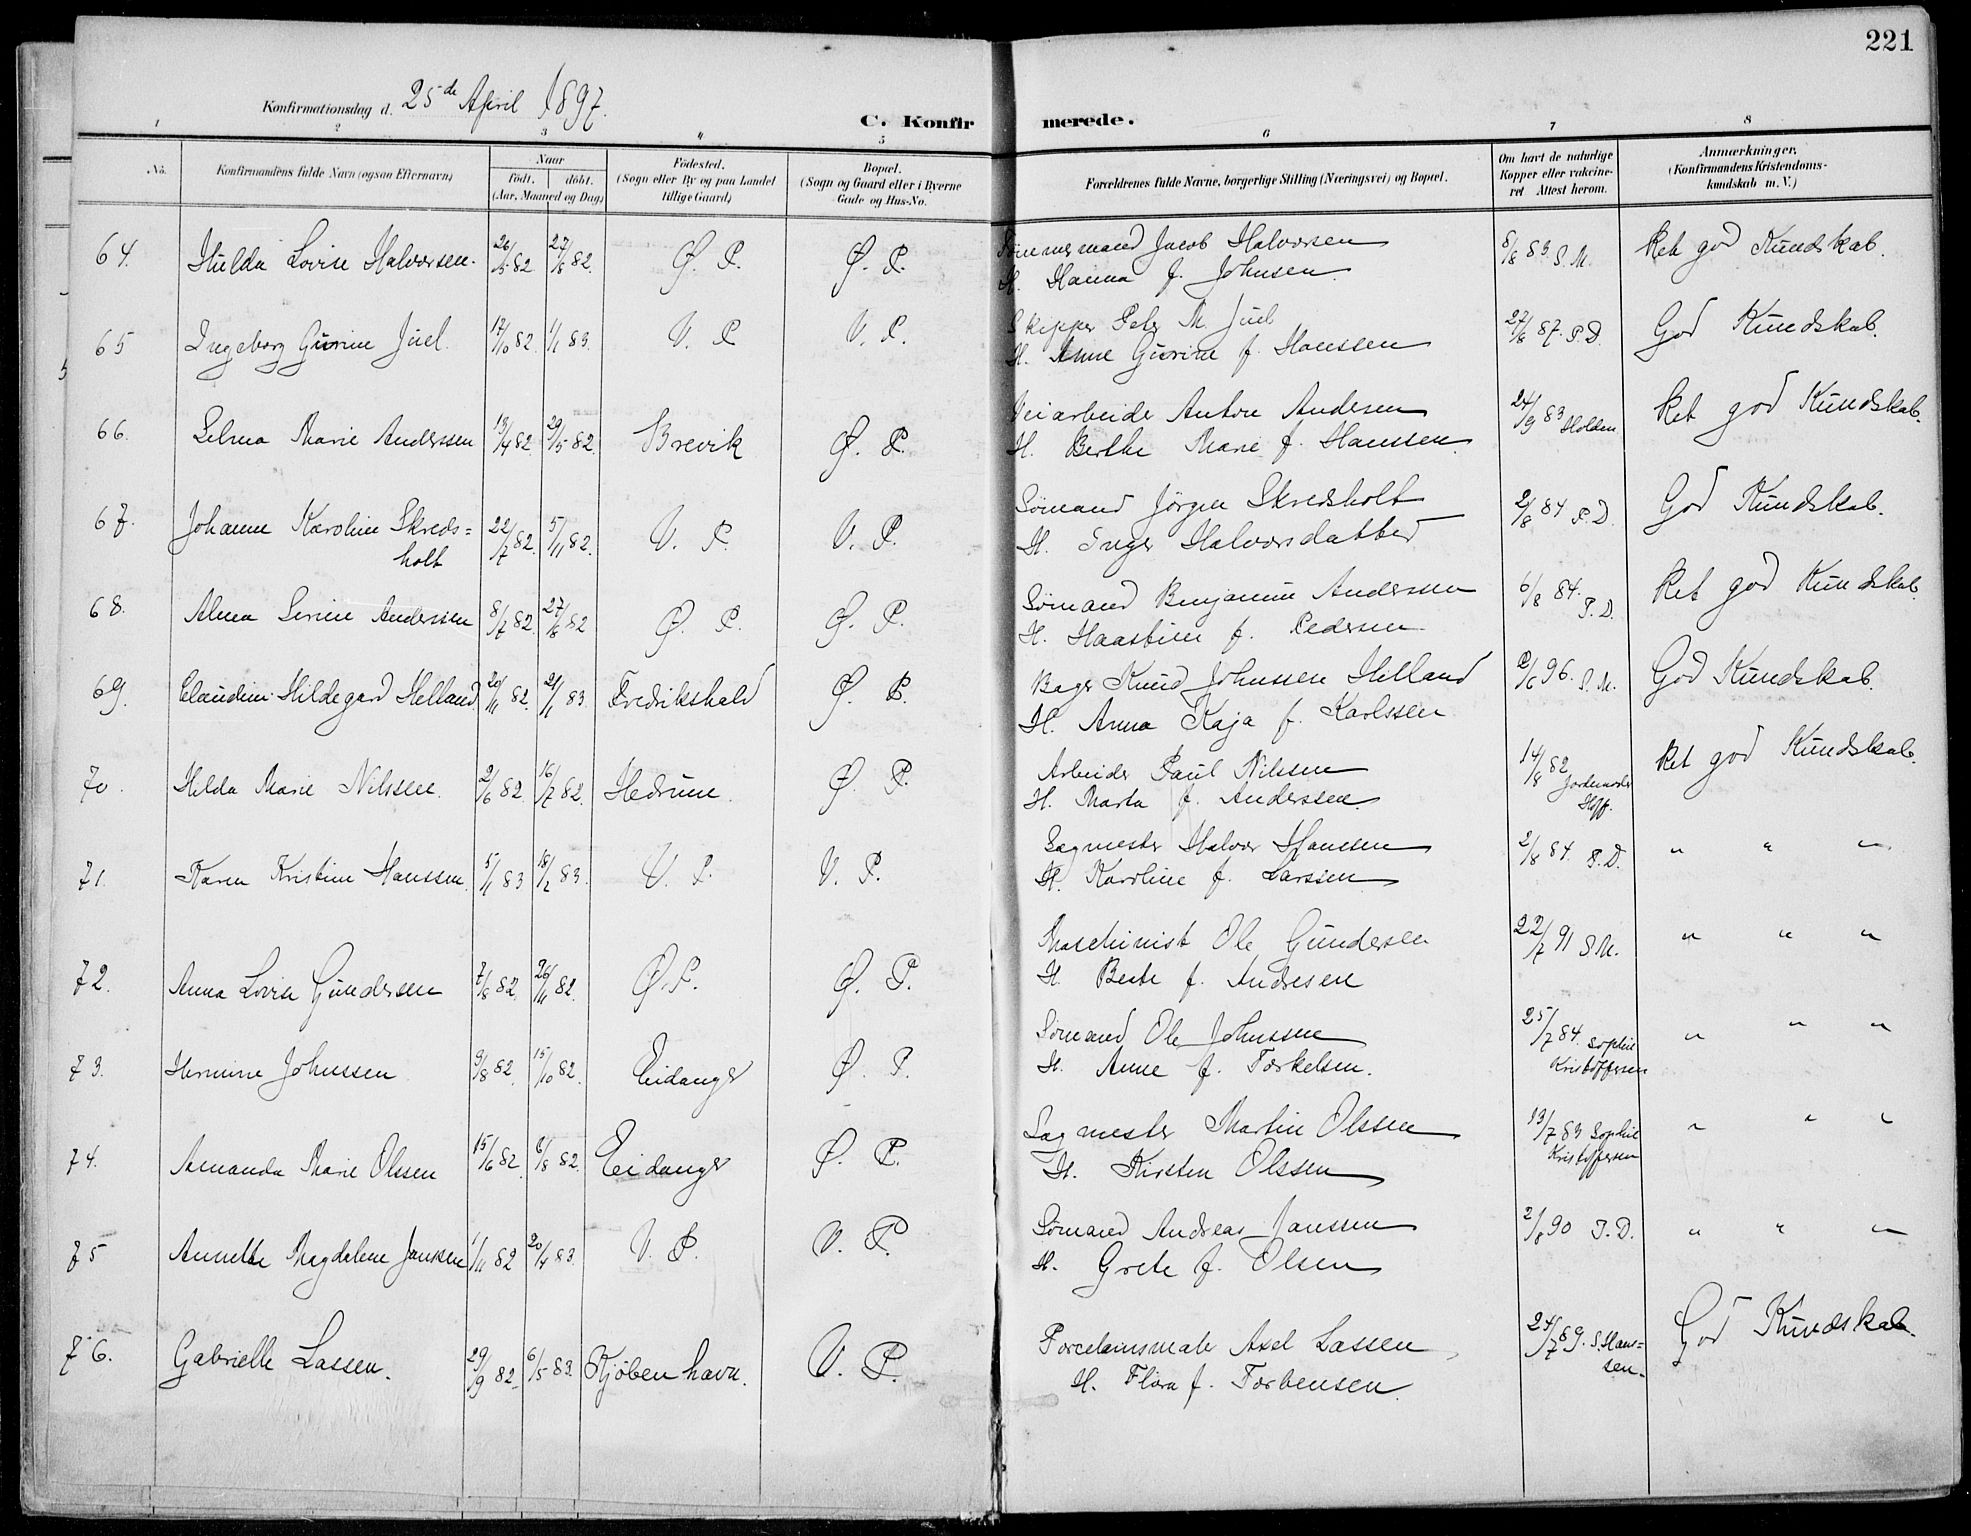 221
Konfirmationsdag d. 25de April 1897.
C. Konfirmerede.
1 2 3 4 5 6 7 8
No. Konfirmandens fulde Navn (ogsaa Efternavn) Naar født. døbt. (Aar, Maaned og Dag) Fødested. (Sogn eller By og paa Landet tillige Gaard) Bopæl. (Sogn og Gaard eller i Byerne Gade og Hus-No. Forældrenes fulde Navne, borgerlige Stilling (Næringsvei) og Bopæl. Om havt de naturlige Kopper eller vakcineret Attest herom. Anmærkninger. (Konfirmandens Kristendomskundskab m. V.)
64. Hulda Lovise Halvorsen. 26/5 82 27/8 82. Ø. P. Ø. P. Tømmermand Jacob Halvorsen 8/8 83. S. M. Ret god Kundskab.
H. Hanna f. Johnsen.
65 Ingeborg Gurine Juel. 17/10 82. 1/1 83. V. P. V. P. Skipper Peter M. Juel 27/8 87. P. D. God Kundskab.
H. Anne Gurine f. Hanssen
66. Selma Marie Anderssen 13/4 82 29/5 82. Brevik Ø. P. Veiarbeider Anton Andersen 24/9 83 Holden Ret god Kundskab.
H. Berthe Marie f. Hanssen
67. Johanne Karoline Skreds= 22/7 82. 5/11 82. V. P. V. P. Sømand Jørgen Skredsholt 2/8 84 P. D. God Kundskab.
holt H. Inger Halvorsdatter
68. Alma Serine Anderssen 8/7 82. 27/8 82 Ø. P. Ø. P. Sømand Benjamin Anderssen 6/8 84. P. D. Ret god Kundskab.
H. Haastine f. Pedersen
69. Claudine Hildegard Helland 20/11 82. 21/1 83. Fredrikshald Ø. P. Bager Knud Johnssen Helland 2/6 96. S. M. God Kundskab.
H. Anna Kaja f. Karlssen
70. Hilda Marie Nilssen. 2/6 82. 16/7 82. Hedrum. Ø. P. Arbeider Paul Nilssen 14/8 82 Jordemoder Hoff. Ret god Kundskab.
H. Marta f. Anderssen.
71. Karen Kristine Hanssen 5/1 83 18/2 83. V. P. V. P. Sagmester Halvor Hanssen 2/8 84. P. D. " " "
H. Karoline f. Larssen
72. Anna Lovise Gundersen 7/8 82. 26/11 82. Ø. P. Ø. P. Maschinist Ole Gundersen 22/7 91 S. M. " " "
H. Beate f. Andresen
73. Hermine Johnssen 9/8 82. 15/10 82. Eidanger Ø. P. Sømand Ole Johnssen 25/7 84. Sophie Kristoffersen " " "
H. Anne f. Torkelsen.
74. Amanda Marie Olssen 15/6 82. 6/8 82. Eidanger Ø. P. Sagmester Martin Olssen 13/7 83 Sophie Kristoffersen " " "
H. Kirsten Olssen
75 Annette Magdalene Janssen 1/11 82 20/4 83. V. P. V. P. Sømand Andreas Janssen 2/8 90 P. D. " " "
H. Grete f. Olsen
76. Gabrielle Lassen. 29/9 82. 6/5 83. Kjøbenhavn. V. P. Porcelainsmaler Axel Lassen 24/7 89. S. Hans= sen. God Kundskab.
H. Flora f. Torbensen.